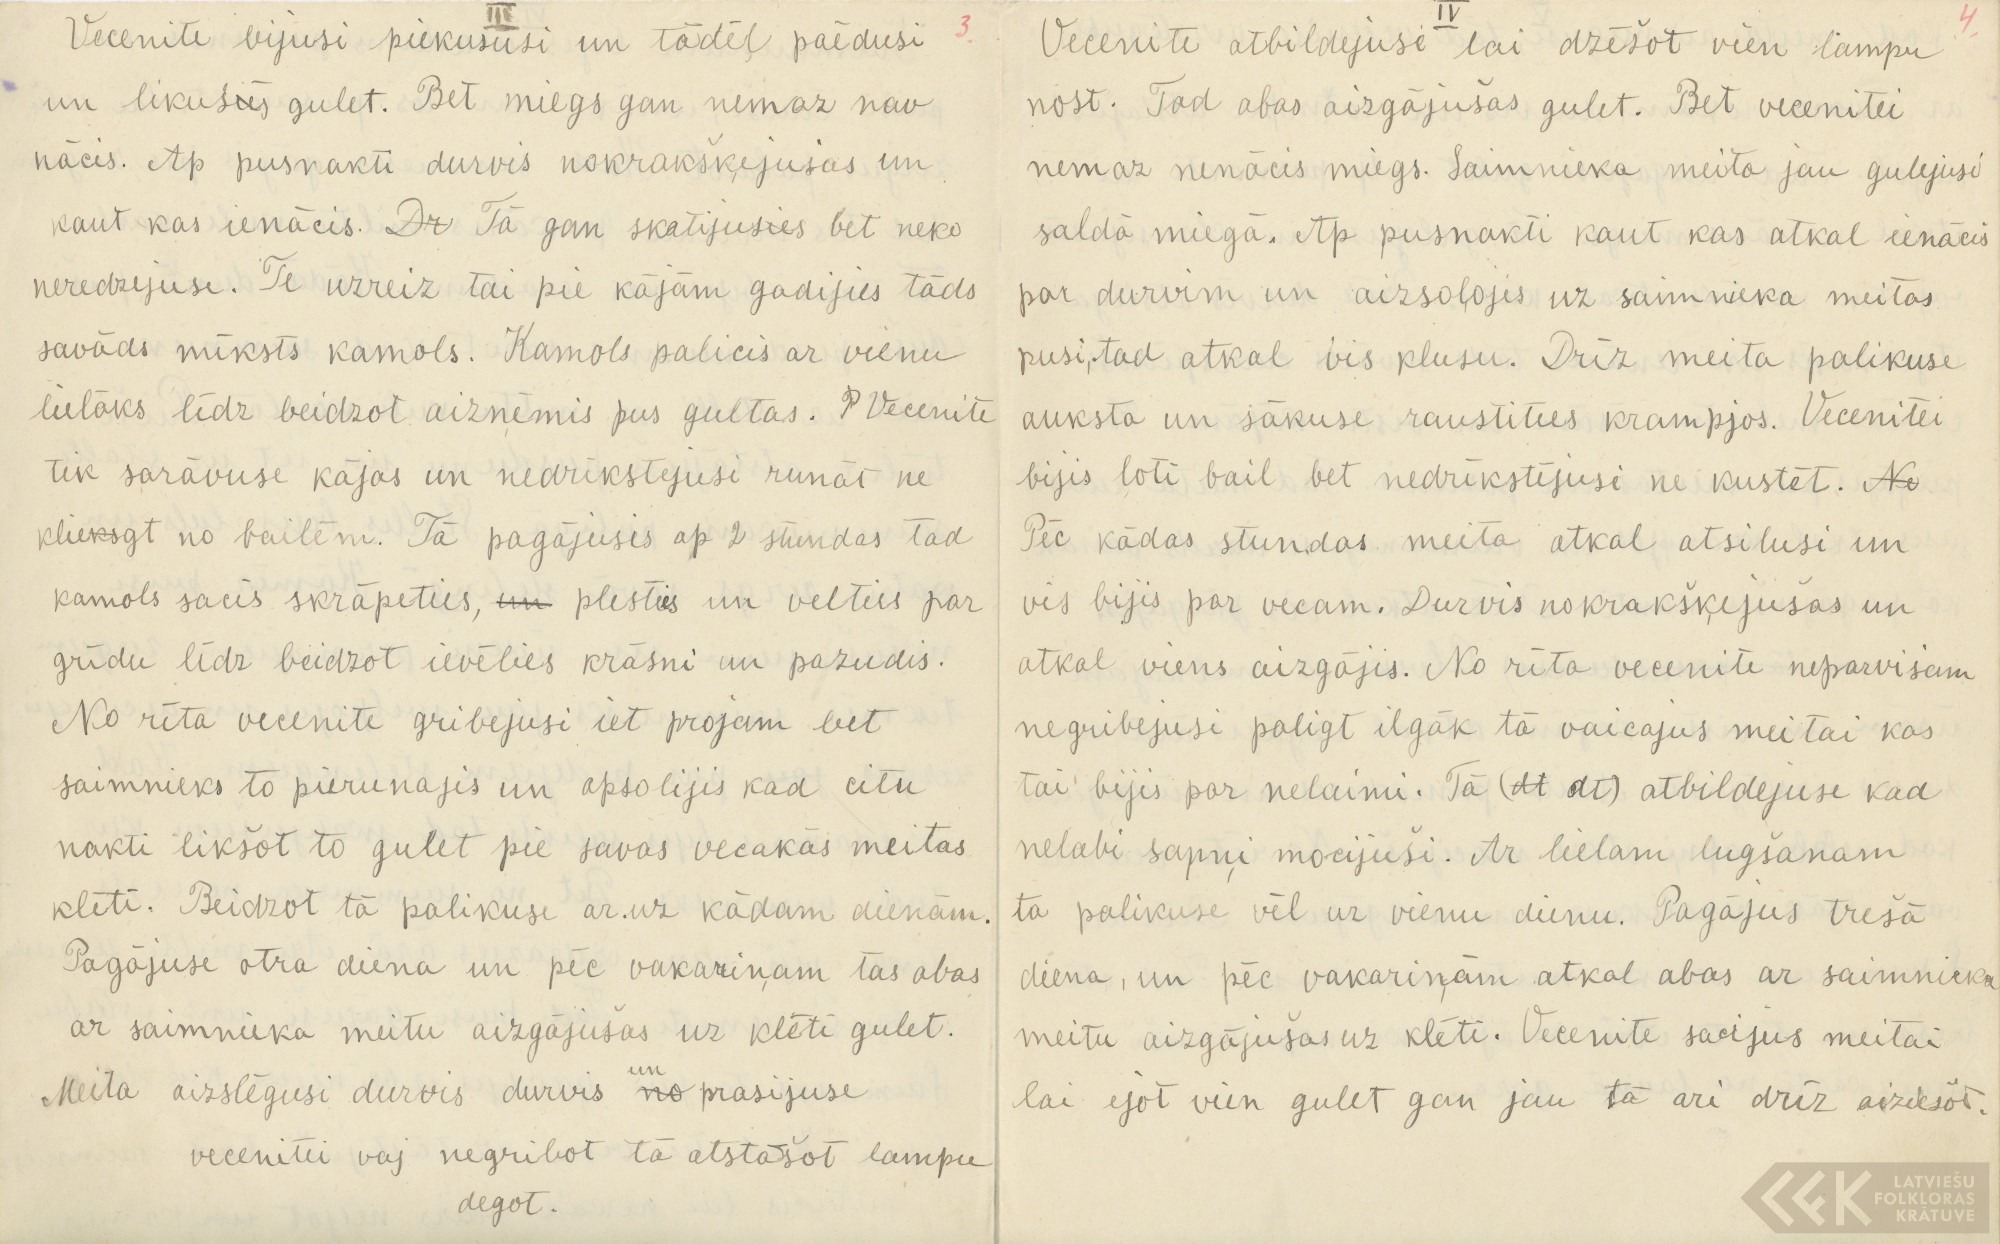 III
3.
Vecenite bijusi piekususi un tādēļ paēdusi
un likusies gulet. Bet miegs gan nemaz nav
nācis. Ap pusnakti durvis nokrakšķejušas un
kaut kas ienācis. Dr Tā gan skatijusies bet neko
neredzejuse. Te uzreiz tai pie kājām gadijies tāds
savāds mīksts kamols. Kamols palicis ar vienu
lielāks līdz beidzot aizņēmis pus gultas. P Vecenite
tik sarāvuse kājas un nedrīkstejusi runāt ne
klieksgt no bailēm. Tā pagājusis ap 2 stundas tad
kamols sacis skrāpeties, un plesties un velties par
grīdu līdz beidzot ievēlies krāsni un pazudis.
No rīta vecenite gribejusi iet projam bet
saimnieks to pierunajis un apsolijis kad citu
nakti likšot to gulet pie savas vecakās meitas
klēti. Beidzot tā palikuse ar uz kādam dienām.
Pagājuse otra diena un pēc vakariņam tas abas
ar saimnieka meitu aizgājušas uz klēti gulet.
Meita aizslēgusi durvis durvis no un prasijuse
vecenitei vaj negribot tā atstāšot lampu
degot.
IV
4.
Vecenite atbildejusi lai dzēšot vien lampu
nost. Tad abas aizgājušas gulet. Bet vecenitei
nemaz nenācis miegs. Saimnieka meita jau gulejusi
saldā miegā. Ap pusnakti kaut kas atkal ienācis
par durvim un aizsoļojis uz saimnieka meitas
pusi, tad atkal bis klusu. Drīz meita palikuse
auksta un sākuse raustities krampjos. Vecenitei
bijis loti bail bet nedrīkstējusi ne kustēt. No
Pēc kādas stundas meita atkal atsilusi un
vis bijis par vecam. Durvis nokrakšķejušas un
atkal viens aizgājis. No rīta vecenite neparvisam
negribejusi paligt ilgāk tā vaicajus meitai kas
tai bijis par nelaimi. Tā (at at) atbildejuse kad
nelabi sapņi mocijuši. Ar lielam lugšanam
tā palikuse vēl uz vienu dienu. Pagājus trešā
diena, un pēc vakariņām atkal abas ar saimnieka
meitu aizgājušas uz klēti. Vecenite sacijus meitai
lai ejot vien gulet gan jau tā ari drīz aiziešot.
LATVIEŠU
FOLKLORAS
KRĀTUVE